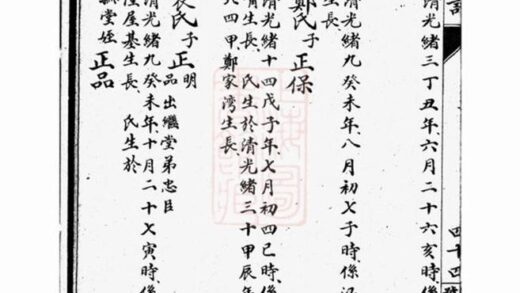 四十四
清光緒三丁丑年、六月二十六亥時、係
清光緒九癸未年、八月初七子時、係
鄭氏子正保
清光緒十四戊子年、七月初四巳時、係
生長、氏生於清光緒三十甲辰年
四甲鄭家湾生長、
袁氏子正明
品出繼堂弟忠臣
清光緒九癸未年、十月二十七寅時、係
屋基生長、氏生於
堂姪正品